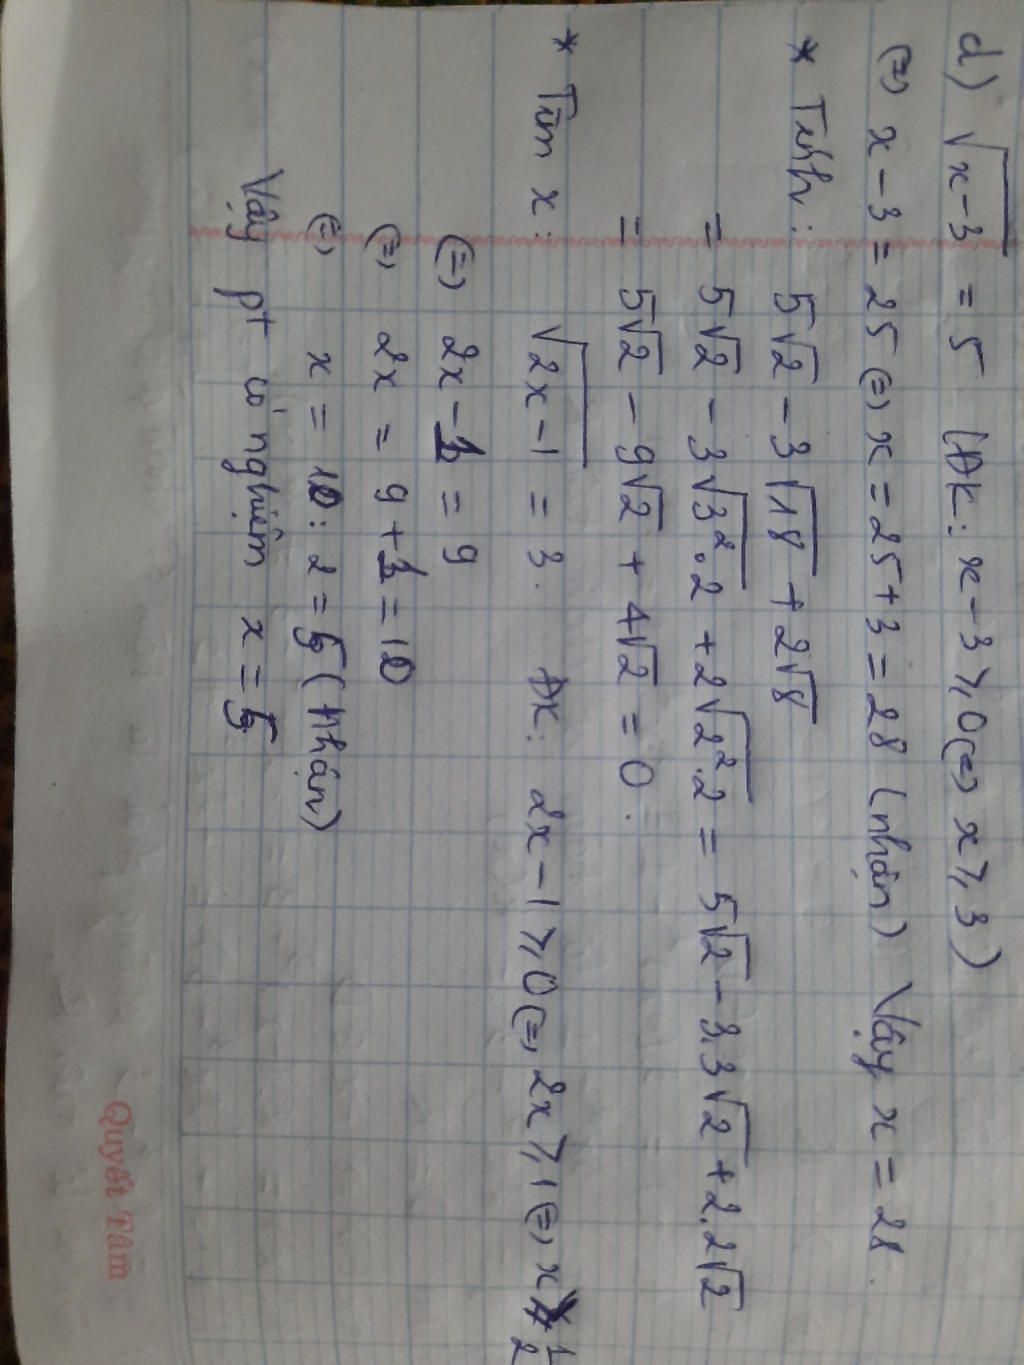 d) √(x-3) = 5 (ĐK: x-3 ⩾ 0 (=) x ⩾ 3)
(=) x-3 = 25 (=) x = 25+3 = 28 (nhận) Vậy x = 28.
* Tính: 5√2 - 3√18 + 2√8
= 5√2 - 3√(3².2) + 2√(2².2) = 5√2 - 3.3√2 + 2.2√2
= 5√2 - 9√2 + 4√2 = 0.
* Tìm x: √(2x-1) = 3. ĐK: 2x-1 ⩾ 0 (=) 2x ⩾ 1 (=) x ⩾ 1/2
(=) 2x-1 = 9
(=) 2x = 9+1 = 10
(=) x = 10:2 = 5 (nhận)
Vậy pt có nghiệm x = 5
Quyết Tâm